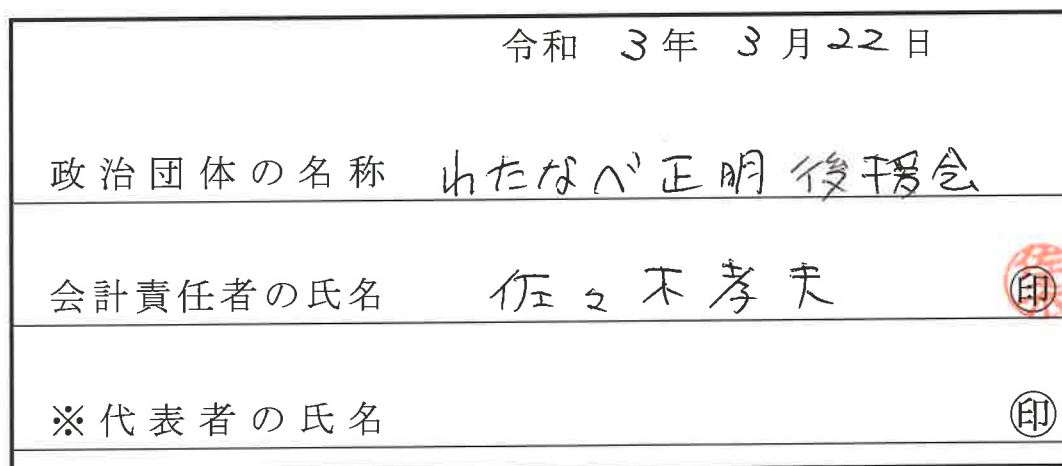 令和 3年 3月22日
政治団体の名称 わたなべ正明後援会
会計責任者の氏名 佐々木孝夫 ㊞
※代表者の氏名 ㊞